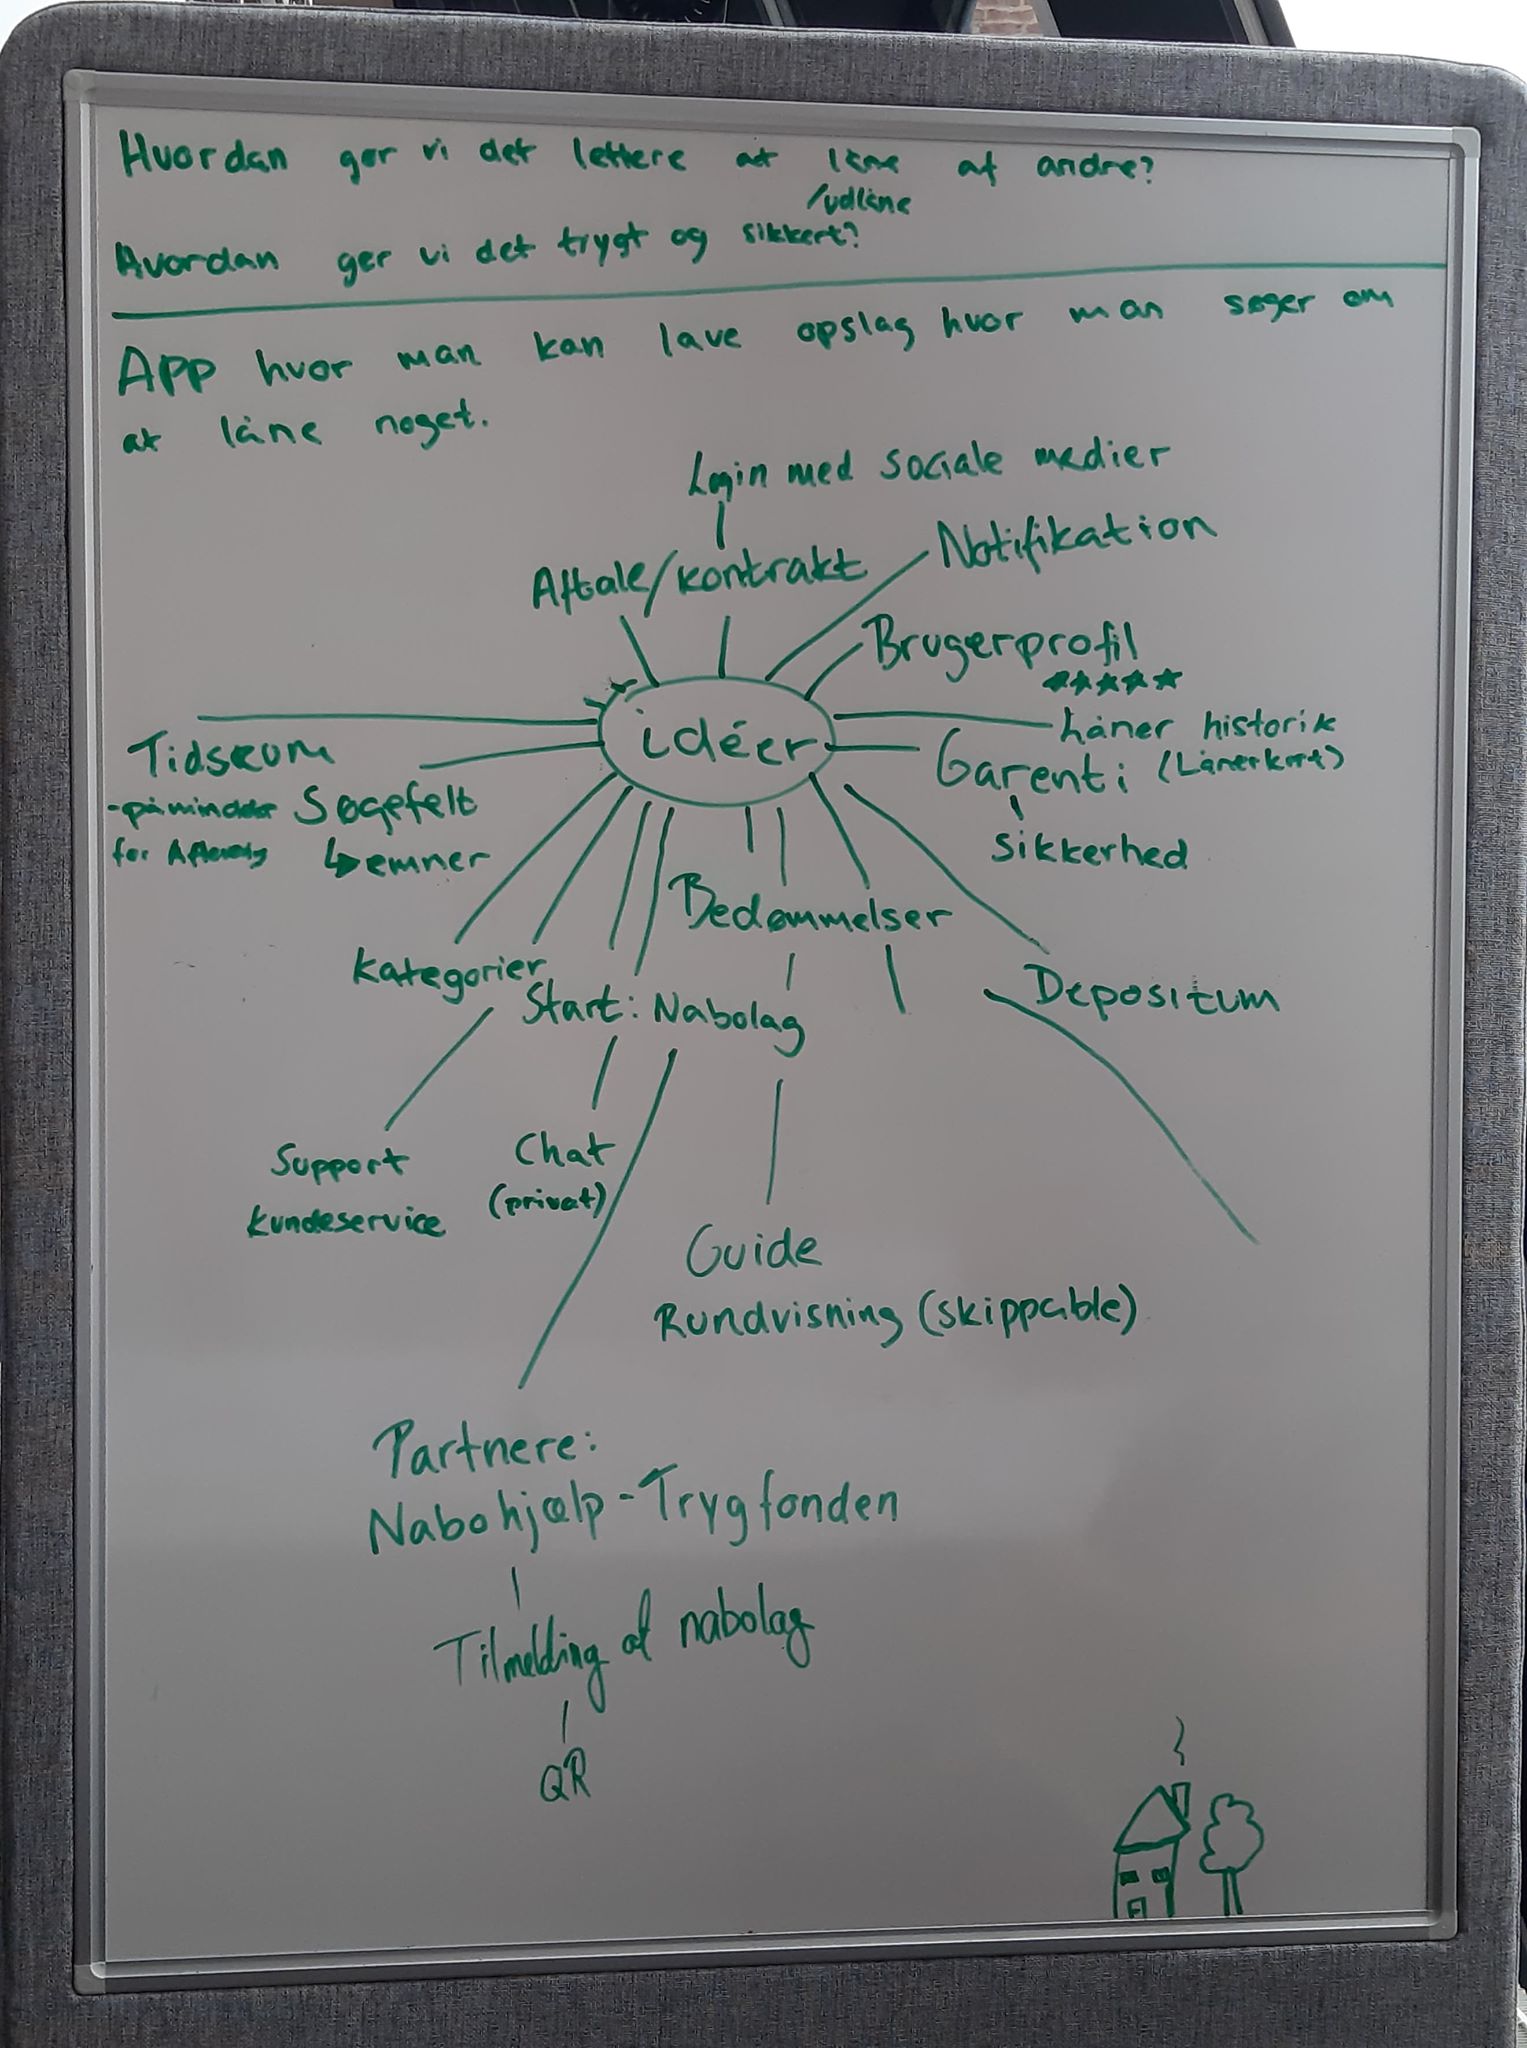 Hvordan gør vi det lettere at låne af andre?
/udlåne
Hvordan gør vi det trygt og sikkert?
App hvor man kan lave opslag hvor man søger om
at låne noget.
Login med sociale medier
Aftale/kontrakt
Notifikation
Brugerprofil
★★★★★
idéer
Låner historik
(Lånerkort)
Garenti
Sikkerhed
Tidsrum
-påminder
for Aflevering
Søgefelt
↳emner
Bedømmelser
Kategorier
Start: Nabolag
Depositum
Support
kundeservice
Chat
(privat)
Guide
Rundvisning (skippable)
Partnere:
Nabohjælp-Trygfonden
Tilmelding af nabolag
QR